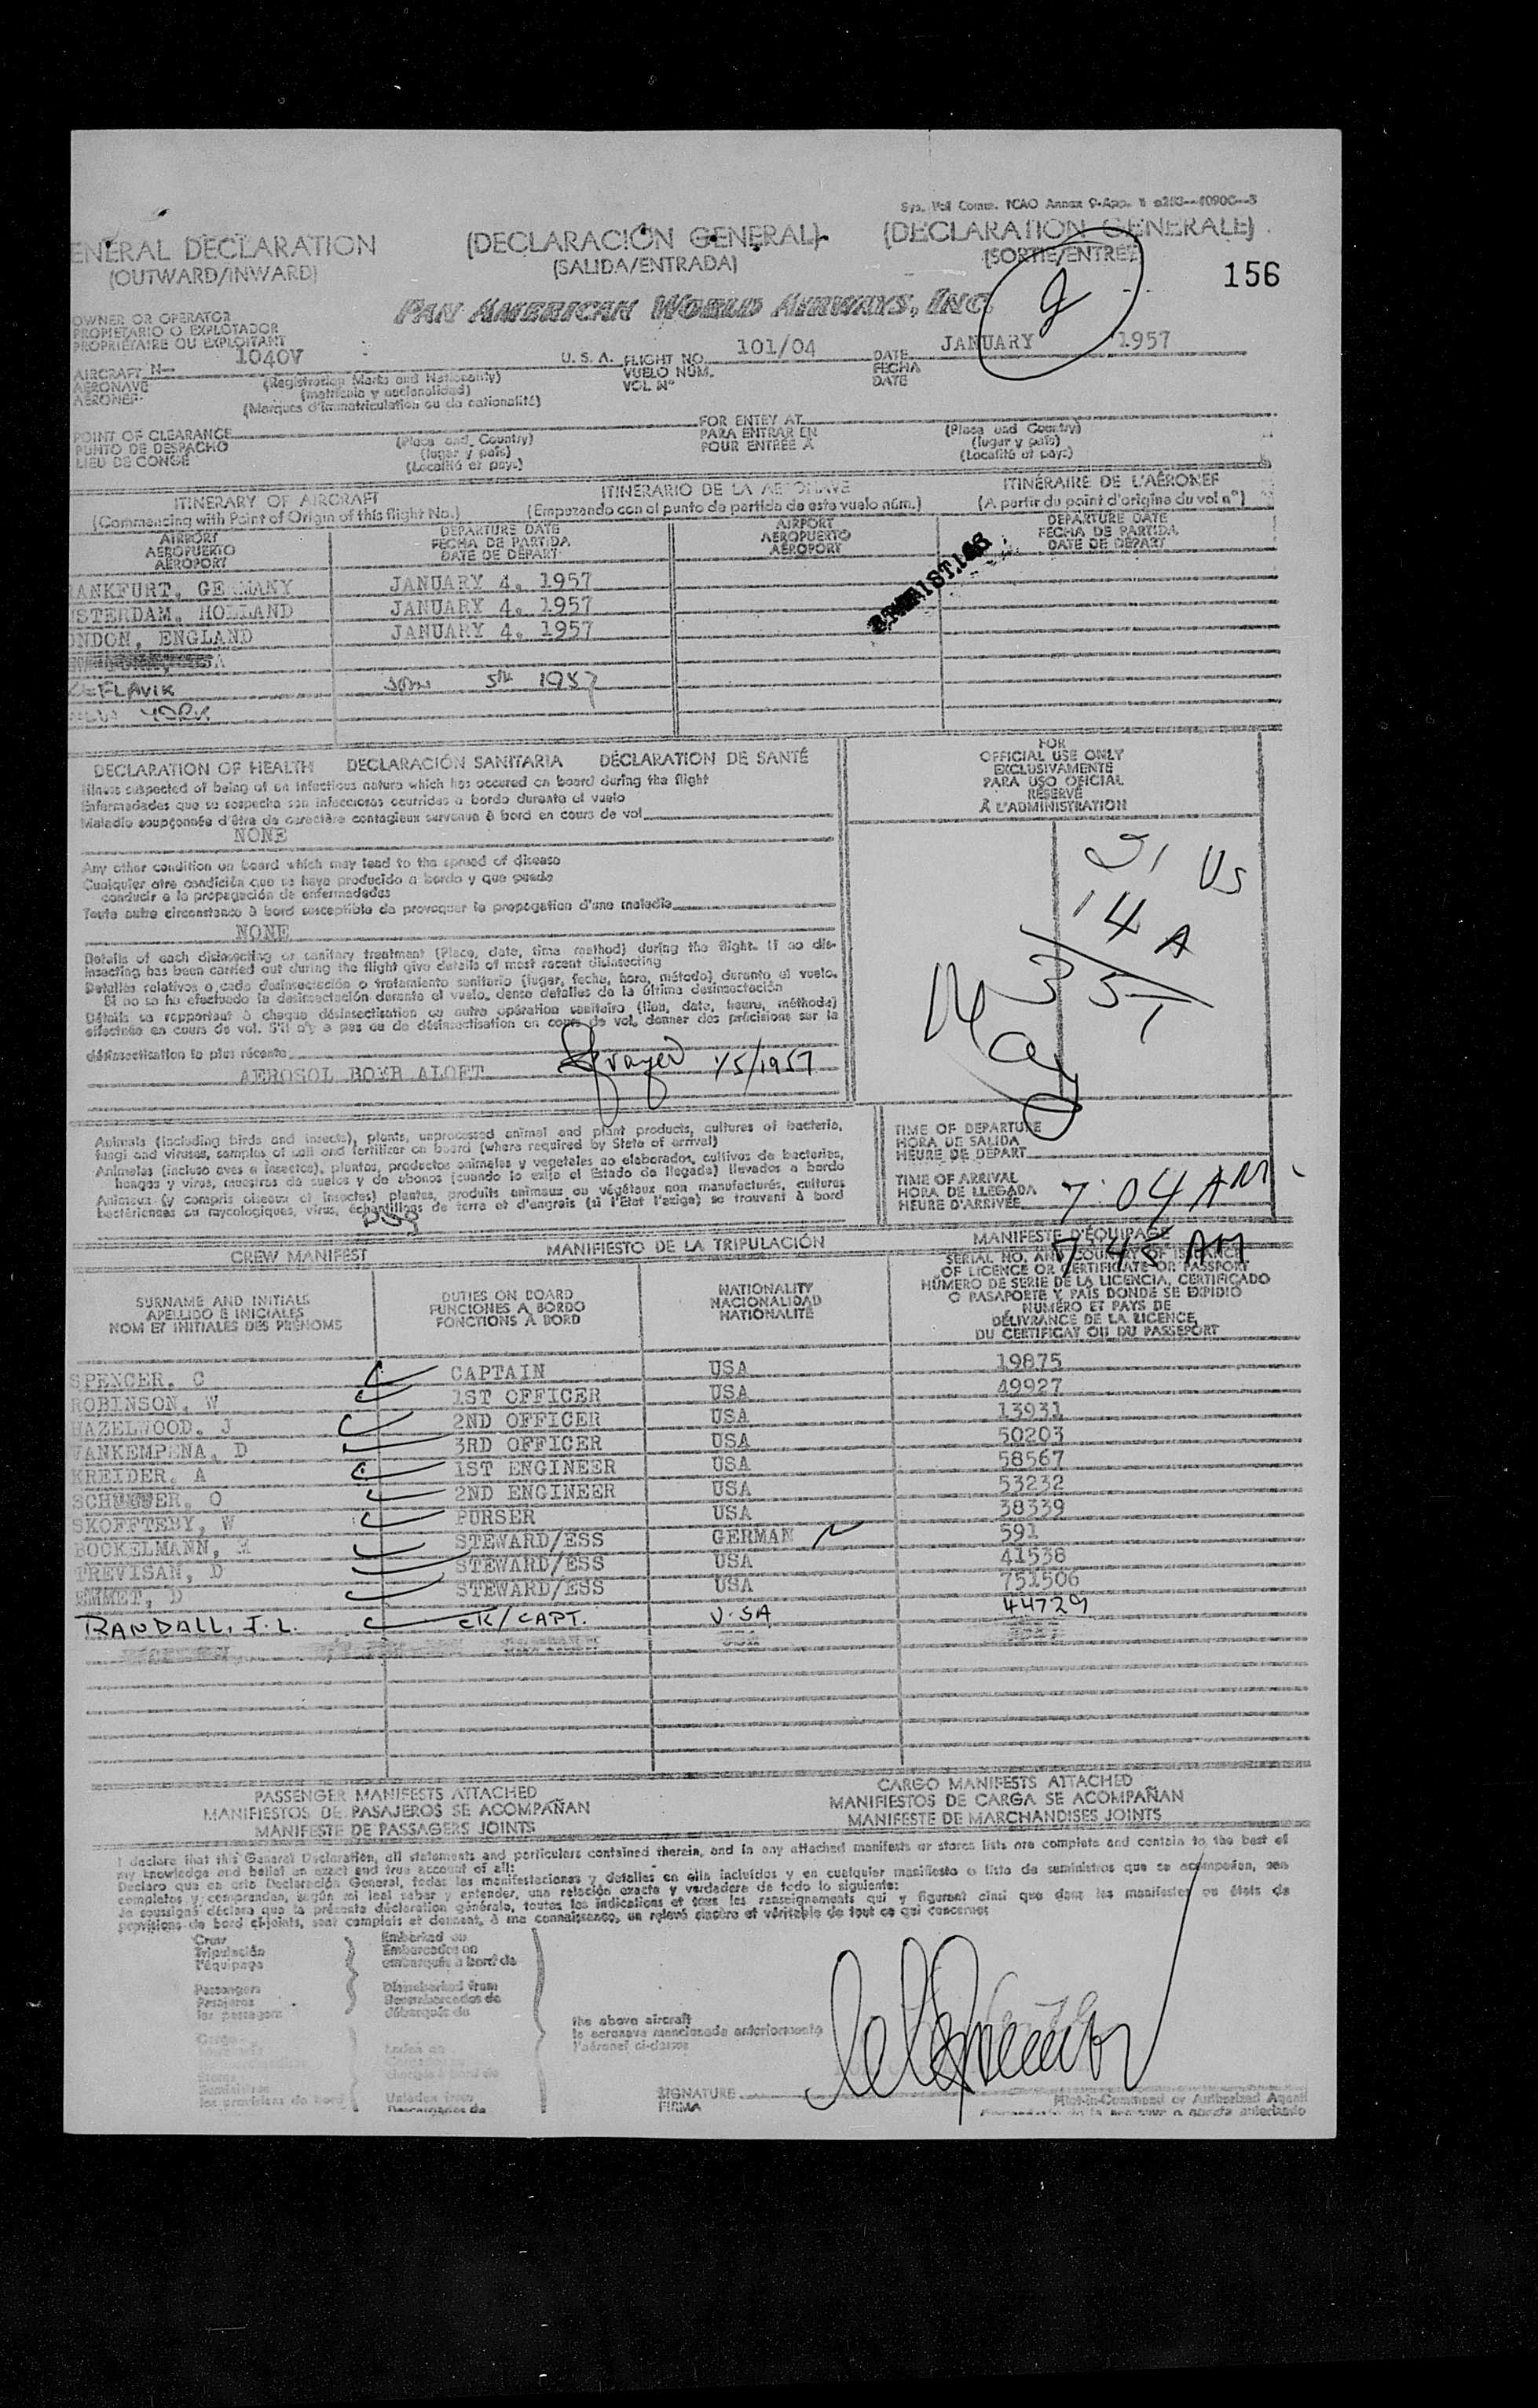 Sys. Vol Comm. ICAO Annex 9-App. 1
ENERAL DECLARATION (DECLARACIÓN GENERAL) (DECLARATION GENERALE)
(OUTWARD/INWARD) (SALIDA/ENTRADA) (SORTIE/ENTREE)
156
PAN AMERICAN WORLD AIRWAYS, INC.
OWNER OR OPERATOR
PROPIETARIO O EXPLOTADOR
PROPRIÉTAIRE OU EXPLOITANT
AIRCRAFT N- 1040V U. S. A. FLIGHT NO. 101/04 DATE JANUARY 1957
AERONAVE (Registration Marks and Nationality) VUELO NÚM. FECHA
AÉRONEF (matrícula y nacionalidad) VOL Nº DATE
(Marques d'immatriculation ou de nationalité)
POINT OF CLEARANCE (Place and Country) FOR ENTRY AT (Place and Country)
PUNTO DE DESPACHO (lugar y país) PARA ENTRAR EN (lugar y país)
LIEU DE CONGÉ (Localité et pays) POUR ENTRÉE A (Localité et pays)
ITINERARY OF AIRCRAFT ITINERARIO DE LA AERONAVE ITINÉRAIRE DE L'AÉRONEF
(Commencing with Point of Origin of this flight No.) (Empezando con el punto de partida de este vuelo núm.) (A partir du point d'origine du vol nº)
AIRPORT DEPARTURE DATE AIRPORT DEPARTURE DATE
AEROPUERTO FECHA DE PARTIDA AEROPUERTO FECHA DE PARTIDA
AÉROPORT DATE DE DÉPART AÉROPORT DATE DE DÉPART
ANKFURT, GERMANY JANUARY 4, 1957
STERDAM, HOLLAND JANUARY 4, 1957
ONDON, ENGLAND JANUARY 4, 1957
KEFLAVIK Jan 5th 1957
YORK
DECLARATION OF HEALTH DECLARACIÓN SANITARIA DÉCLARATION DE SANTÉ
Illness suspected of being of an infectious nature which has occured on board during the flight
Enfermedades que se sospecha son infecciosas ocurridas a bordo durante el vuelo
Maladie soupçonnée d'être de caractère contagieux survenue à bord en cours de vol
NONE
Any other condition on board which may lead to the spread of disease
Cualquier otra condición que se haya producido a bordo y que pueda
conducir a la propagación de enfermedades
Toute autre circonstance à bord susceptible de provoquer la propagation d'une maladie
NONE
Details of each disinsecting or sanitary treatment (Place, date, time method) during the flight. If no dis-
insecting has been carried out during the flight give details of most recent disinsecting
Detalles relativos a cada desinsectación o tratamiento sanitario (lugar, fecha, hora, método) durante el vuelo.
Si no se ha efectuado la desinsectación durante el vuelo, dense detalles de la última desinsectación
Détails se rapportant à chaque désinsectisation ou autre opération sanitaire (lieu, date, heure, méthode)
effectuée en cours de vol. S'il n'y a pas eu de désinsectisation en cours de vol, donner des précisions sur la
désinsectisation la plus récente
AEROSOL BOEB ALOFT Sprayed 1/5/1957
FOR
OFFICIAL USE ONLY
EXCLUSIVAMENTE
PARA USO OFICIAL
RÉSERVÉ
À L'ADMINISTRATION
21 US
14 A
Animals (including birds and insects), plants, unprocessed animal and plant products, cultures of bacteria,
fungi and viruses, samples of soil and fertilizer on board (where required by State of arrival)
Animales (incluso aves e insectos), plantas, productos animales y vegetales no elaborados, cultivos de bacterias,
hongos y virus, muestras de suelos y de abonos (cuando lo exija el Estado de llegada) llevados a bordo
Animaux (y compris oiseaux et insectes) plantes, produits animaux ou végétaux non manufacturés, cultures
bactériennes ou mycologiques, virus, échantillons de terre et d'engrais (si l'Etat l'exige) se trouvant à bord
TIME OF DEPARTURE
HORA DE SALIDA
HEURE DE DÉPART
TIME OF ARRIVAL
HORA DE LLEGADA
HEURE D'ARRIVÉE 7:04 AM
7:45 AM
CREW MANIFEST MANIFIESTO DE LA TRIPULACIÓN MANIFESTE D'ÉQUIPAGE
SURNAME AND INITIALS
APELLIDO E INICIALES
NOM ET INITIALES DES PRÉNOMS
DUTIES ON BOARD
FUNCIONES A BORDO
FONCTIONS A BORD
NATIONALITY
NACIONALIDAD
NATIONALITÉ
SERIAL NO. AND COUNTRY OF ISSUANCE
OF LICENCE OR CERTIFICATE OR PASSPORT
NÚMERO DE SERIE DE LA LICENCIA, CERTIFICADO
O PASAPORTE Y PAIS DONDE SE EXPIDIÓ
NUMÉRO ET PAYS DE
DÉLIVRANCE DE LA LICENCE,
DU CERTIFICAT OU DU PASSEPORT
SPENCER, C CAPTAIN USA 19875
ROBINSON, W 1ST OFFICER USA 49927
HAZELWOOD, J 2ND OFFICER USA 13931
VANKEMPENA, D 3RD OFFICER USA 50203
KREIDER, A 1ST ENGINEER USA 58567
O 2ND ENGINEER USA 53232
SKOFFTEBY, W PURSER USA 38339
BOCKELMANN, M STEWARD/ESS GERMAN 591
TREVISAN, D STEWARD/ESS USA 41538
EMMET, D STEWARD/ESS USA 751506
RANDALL, J. L. CK/CAPT. U.SA 44729
PASSENGER MANIFESTS ATTACHED CARGO MANIFESTS ATTACHED
MANIFIESTOS DE PASAJEROS SE ACOMPAÑAN MANIFIESTOS DE CARGA SE ACOMPAÑAN
MANIFESTE DE PASSAGERS JOINTS MANIFESTE DE MARCHANDISES JOINTS
I declare that this General Declaration, all statements and particulars contained therein, and in any attached manifests or stores lists are complete and contain to the best of
my knowledge and belief an exact and true account of all:
Declaro que en esta Declaración General, todas las manifestaciones y detalles en ella incluídos y en cualquier manifiesto o lista de suministros que se acompañan, son
completos y comprenden, según mi leal saber y entender, una relación exacta y verdadera de todo lo siguiente:
Je soussigné déclare que la présente déclaration générale, toutes les indications et tous les renseignements qui y figurent ainsi que dans les manifestes ou états de
provisions de bord ci-joints, sont complets et donnent, à ma connaissance, un relevé sincère et véritable de tout ce qui concerne:
Crew Embarked on
Tripulación Embarcados en
l'équipage embarqués à bord de
Passengers Disembarked from
Pasajeros Desembarcados de
les passagers débarqués de
the above aircraft
la aeronave mencionada anteriormente
l'aéronef ci-dessus
Cargo
Stores Unladen from
Suministros Descargados de
les provisions de bord
SIGNATURE
FIRMA
Pilot-in-Command or Authorized Agent